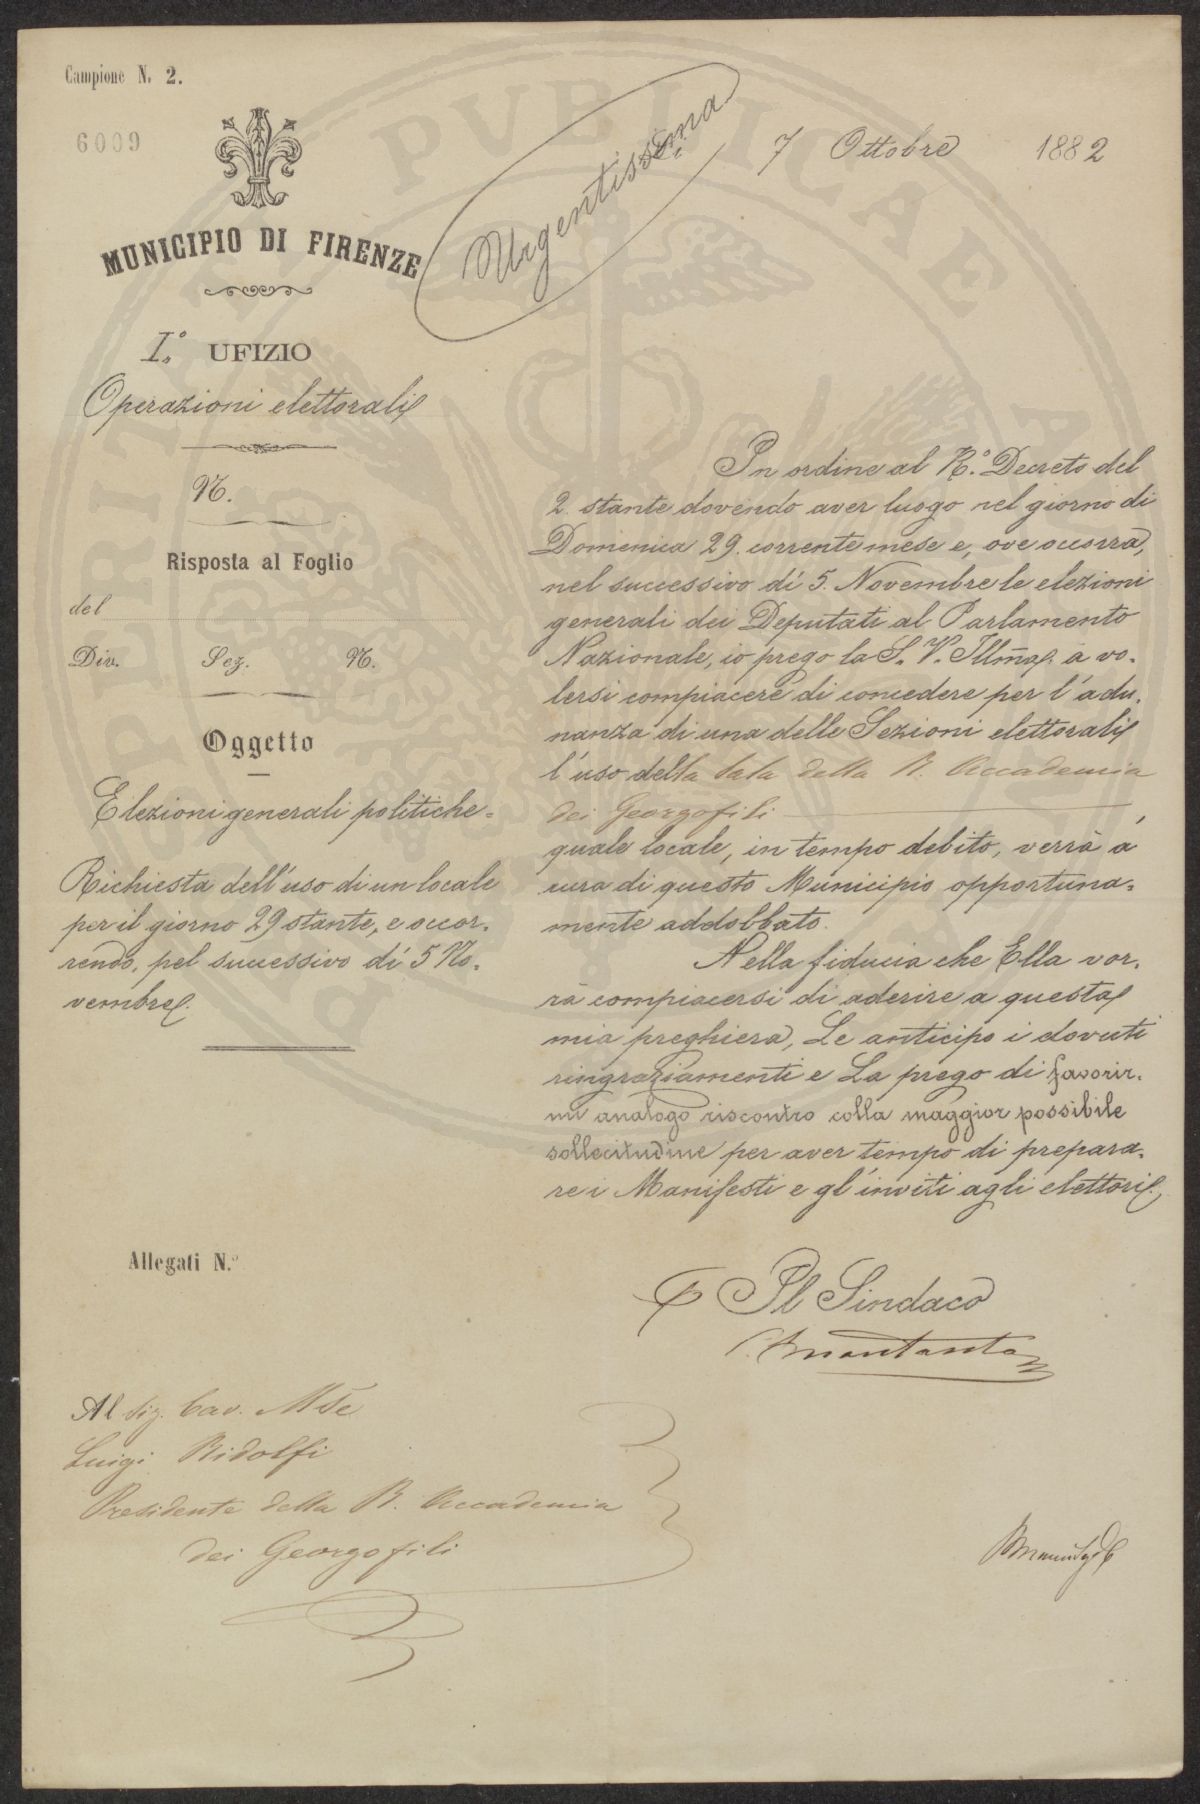 Campione N. 2.
6009
MUNICIPIO DI FIRENZE
Urgentissima
Li 7 Ottobre 1882
I.° UFIZIO
Operazioni elettorali
N.
Risposta al Foglio
del
Div. Sez. N.
Oggetto
Elezioni generali politiche=
Richiesta dell'uso di un locale
per il giorno 29 stante, e occor=
rendo, pel successivo dì 5 No=
vembre.
In ordine al R.° Decreto del
2. stante dovendo aver luogo nel giorno di
Domenica 29. corrente mese e, ove occorra,
nel successivo dì 5. Novembre le elezioni
generali dei Deputati al Parlamento
Nazionale, io prego la S. V. Illm̃a. a vo=
lersi compiacere di concedere per l'adu=
nanza di una delle Sezioni elettorali
l'uso della Sala della R. Accademia
dei Georgofili
quale locale, in tempo debito, verrà a
cura di questo Municipio opportuna=
mente addobbato.
Nella fiducia che Ella vor=
rà compiacersi di aderire a questa
mia preghiera, Le anticipo i dovuti
ringraziamenti e La prego di favorir=
mi analogo riscontro colla maggior possibile
sollecitudine per aver tempo di prepara=
re i Manifesti e gl'inviti agli elettori.
Allegati N.°
Il Sindaco
Al Sig. Cav. Mse
Luigi Ridolfi
Presidente della R. Accademia
dei Georgofili
PUBLICAE